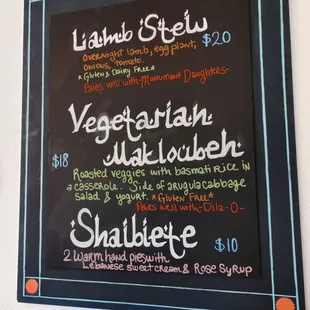 Lamb Stew
Overnight lamb, egg plant, $20
onions, tomato.
*Gluten & Dairy Free*
Pairs well with -Monument Daughters-
Vegetarian
$18 Makloubeh
Roasted veggies with basmati rice in
a casserole. Side of arugula cabbage
salad & yogurt. *Gluten Free*
Pairs well with -Dila-O-
Shaibiete $10
2 Warm hand pies with
Lebanese sweet cream & Rose Syrup